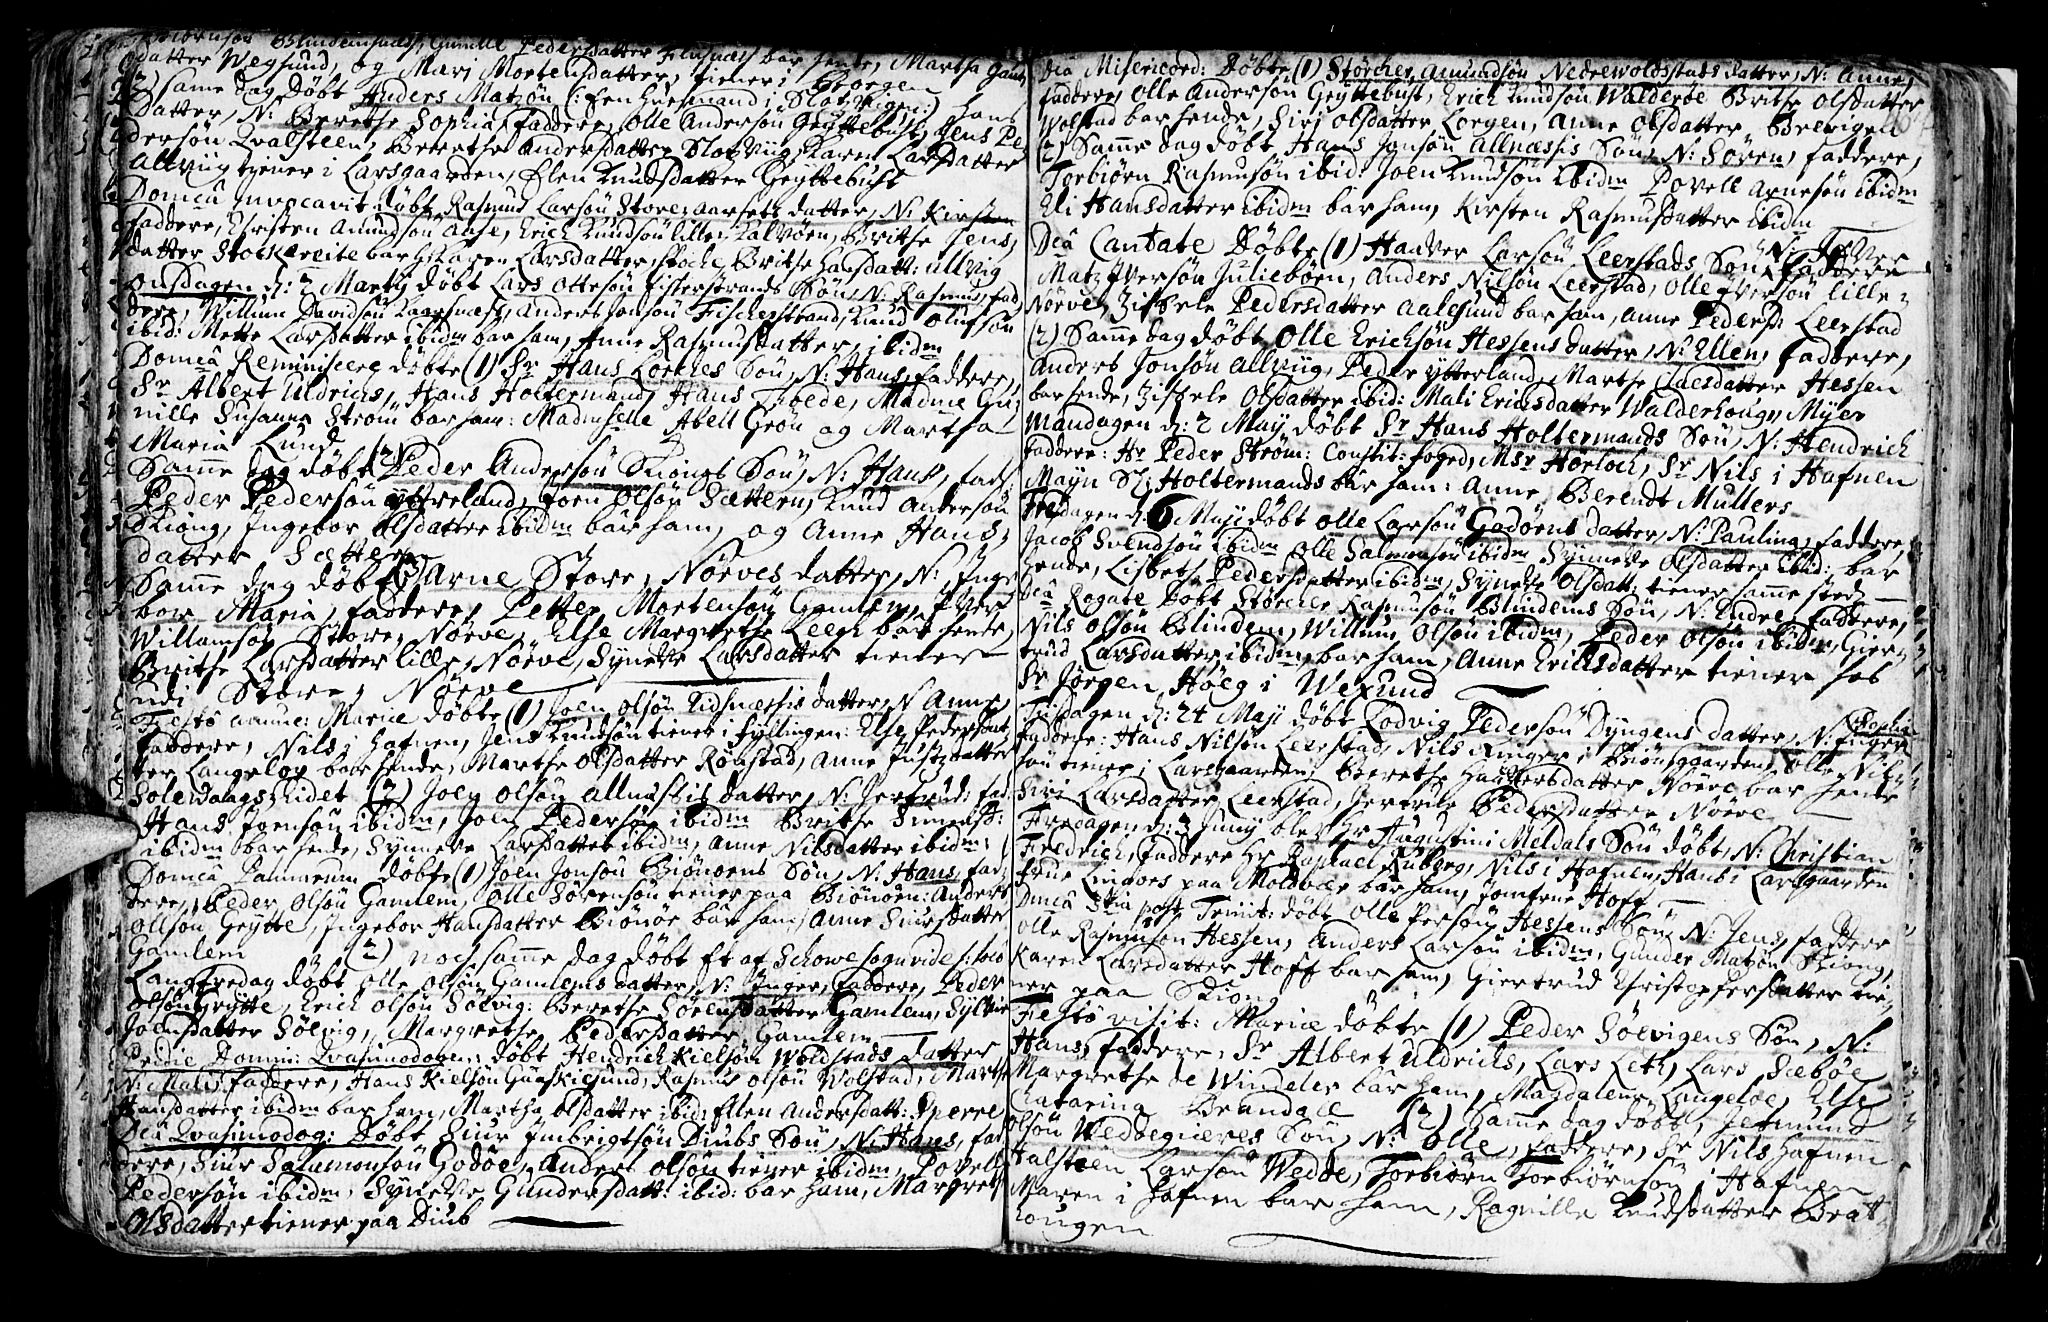 Biörnsön Blindemsnæs, Gunille Pedersdatter Flisnæs bar hende, Martha
datter Wegsund, og Mari Mortensdatter, tiener i Borgen
(2) same dag döbt Anders Matzön (: Een huusmand i Slotzvigen:) hans
datter, N: Berethe Sophia, faddere, Olle Andersön Gryttebust, Jens Pe-
dersön Qvalsteen, Berethe Andersdatter Slotzviig, Karen Larsdatter
Allviig tiener i Larsgaarden, Elen Knudsdatter Gryttebust
Domca Invocavit döbt Rasmus Larsön Store-Aarsets datter, N: Kirsten
faddere, Christen Amundsön Aase, Erich Knudsön lille Kalvöen, Brithe Jens-
datter Stockreite bar h: Karen Larsdatter, Brithe Hansdatt: Ullvig
Onsdagen d: 2 Martij döbt Lars Ottesön fisterstrands Sön, N: Rasmus, fad-
dere, Willum Davidsön Kaarsnæs, Anders Jonsön Fischerstrand, Knud Olufsön
ibid: Mette Larsdatter ibidm bar ham, Anne Rasmusdatter, ibidm
Domca Reminiscere döbte (1) Sr Hans Lorches Sön, N: Hans, faddere,
Sr Albert Uldrichs, Hans Holtermand, Hans Thode, Madme Gu-
nille Susanna Ström bar ham: Madmselle Abell Grön og Martha
Maria Lund
Samme dag döbt (2) Peder Andersön Skiongs Sön, N: Hans, fad:
Peder Pedersön Ytterland, Joen Olsön Sættern, Knud Andersön
Skiong, Ingebor Olsdatter ibidm bar ham, og Anne Hans-
datter Sætter
Samme dag döbt (3) Arne Store-Nörves datter, N: Inge-
bor Maria, faddere, Petter Mortensön Gamlem, Iver
Willamsön Store-Nörve, Else Margrethe Leegh bar hende,
Brithe Larsdatter lille-Nörve, Synneve Larsdatter tiener
udi Store-Nörve
Festo annunc: Mariæ döbte (1) Joen Olsön Eidsnæssis datter, N: Anne,
faddere, Nils i Hafnen, Jens Knudsön tiener i Fyllingen: Else Pedersdat-
ter Langeloe bar hende, Marthe Olsdatter Rönstad, Anne Justzdatter
Solewaags Eidet (2) Joen Olsön Allnæssis datter, N: Jertrud: fad:
Hans Joensön ibidm, Joen Pedersön ibidm Brithe Simensd:
ibidm bar hende, Synneve Larsdatter ibidm, Anne Nilsdatter ibidm:
Domca Palmarum döbte (1) Joen Jonsön Biönöens Sön, N: Hans, fad-
dere, Peder Olsön Gamlem, Olle Sörensön tiener paa Biönöen: Anders
Ollsön Grytte, Ingebor Hansdatter Biönöe bar ham, Anne Siursdatter
Gamlem (2) noch samme dag döbt Et af Schowe sogn vide s: loco
Langfredag döbt Olle Olsön Gamlems datter, N: Inger, faddere, Peder
Olsön Grytte, Erich Olsön Solvig: Berethe Sörensdatter Gamlem, Sylvie
Joensdatter Sölvig, Margrethe Pedersdatter Gamlem
Pridie Domin: Qvasimodogen: döbt Hendrich Kielsön Wolstads datter
N: Mali, faddere, Hans Kielsön Gaaskiesund, Rasmus Olsön Wolstad, Marthe
Hansdatter ibidm bar ham, Martha Olsdatter ibid: Ellen Andersdatt: Sperre
Dca Qvasimodog: Döbt Siur Imbrigtsön Diubs Sön, N: Hans, fad-
dere, Siur Salamonsön Godöe, Anders Olsön tiener ibidm, Povell
Pedersön ibidm, Synneve Gundersdatt: ibid: bar ham, Margret
Olsdatter tiener paa Diub
Dca Misericord: Döbte (1) Störcher Amundsön Nedrewoldstads datter, N: Anne,
faddere, Olle Andersön Gryttebust, Erich Knudsön Walderöe Brithe Olsdatter
Wolstad bar hende, Siri Olsdatter Lorgen, Anne Olsdatter Brevigen
(2) Samme dag döbt Hans Jonsön Allnæssis Sön, N: Sören, faddere,
Torbiörn Rasmusön ibid: Joen Knudsön ibidm Povell Arnesön ibidm
Eli Hansdatter ibidm bar ham, Kirsten Rasmusdatter ibidm
Dca Cantate Döbte (1) Hadver Larsön Leerstads Sön, N: Iver faddere
Matz Iversön Julieböen, Anders Nilsön Leerstad, Olle Iversön lille-
Nörve, Zissele Pedersdatter Aalesund bar ham, Anne Pedersd: Leerstad
(2) Samme dag döbt Olle Erichsön Hessens datter, N: Ellen, faddere,
Anders Jonsön Allviig, Peder Ytterland, Marthe Claesdatter Hessen
bar hende, Zissele Olsdatter ibid: Mali Erichsdatter Walderhoug, Myer
Mandagen d: 2 Maij döbt Sr Hans Holtermands Sön, N: Hendrich
faddere: Hr Peder Ström: Constit: foged, Msr Hörloch, Sr Nils i Hafnen
Mayn Sl: Holtermands bar ham: Anne Berendt Mullers
Fredagen d: 6 Maji döbt Olle Larsön Godöens datter, N: Paulina, faddere,
Jacob Svendsön ibidm Olle Salmonsön ibidm Synneve Olsdatter ibid: bar
hende, Lisbeth Pedersdatter ibidm, Synneve Olsdatt: tiener samme sted
Dca Rogate Döbt Störcher Rasmusön Blindems Sön, N: Endre, faddere,
Nils Olsön Blindem, Willum Olsön ibidm, Peder Olsön ibidm, Gier-
trud Larsdatter ibidm bar ham, Anne Erichsdatter tiener hos
Sr Jörgen Höeg i Wexund
Tirsdagen d: 24 Maji döbt Lodvig Pedersön Dyngens datter, N: Inger Sophia
faddere: Hans Nilsön Leerstad, Nils Ringer i Biönsgaarden, Olle Nils-
sön tiener i Larsgaarden, Berethe Hadversdatter Nörve bar hende
Siri Larsdatter Leerstad, Gertrue Pedersdatter Nörve
Fredagen d: 3 Junij blev Hr Augustini Meldals Sön döbt, N: Christian
Fredrich, faddere Hr Raphael Ruberg, Nils i Hafnen, Hans i Larsgaarden
frue Lindoes paa Moldvær bar ham, Jomfrue Hoff
Dmca post Trinit: döbt Olle Persön Hessens Sön, N: Jens, faddere
Olle Rasmusön Hessen, Anders Larsön ibidm, Gunder Matzön Skiong,
Karen Larsdatter Hoff bar ham, Giertrud Christophersdatter tie-
ner paa Skiong
Festo visit: Mariæ döbte (1) Peder Söevigens Sön, N:
Hans, faddere, Sr Albert Uldrichs, Lars Leth, Lars Sæböe
Margrethe de Windeler bar ham, Magdalena Langeloe, Else
Catarina Brandall (2) Samme dag döbt, Jetmund
Olsön Wedbegiæres Sön, N: Olle, faddere, Sr Nils Hafnen
Halsteen Larsön Wedde, Torbiörn Torbiörnsön i Hafnen
Maren i Hafnen bar ham, Ragnille Knudsdatter Brat-
hougen